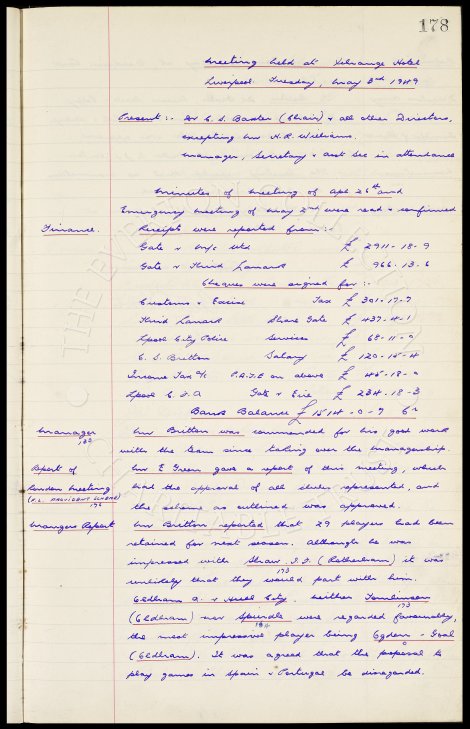 178
Meeting held at Exchange Hotel
Liverpool. Tuesday, May 3rd 1949
Present:- Dr C. S. Baxter (Chair) & all other Directors,
excepting Mr N. R. Williams.
Manager, Secretary & asst Sec in attendance
Minutes of meeting of Apl 26th and
Emergency meeting of May 2nd were read & confirmed
Finance. Receipts were reported from:-
Gate v M/c Utd £ 2911-18-9
Gate v Third Lanark £ 966-13-6
Cheques were signed for:-
Customs & Excise Tax £ 301-17-7
Third Lanark Share Gate £ 437-4-1
Lpool City Police Services £ 68-11-0
C. S. Britton Salary £ 120-15-4
Income Tax a/c P.A.Y.E on above £ 45-18-0
Lpool C.F.A Gate v Eire £ 234-18-3
Bank Balance £ 1514-0-9 Cr
Manager Mr Britton was commended for his good work
183
with the team since taking over the managership.
Report of Mr E Green gave a report of this meeting, which
London Meeting had the approval of all clubs represented, and
(F.L. PROVIDENT SCHEME)
176
the scheme as outlined was approved.
Managers Report Mr Britton reported that 29 players had been
retained for next season. Although he was
impressed with Shaw. J. (Rotherham) it was
173
unlikely that they would part with him.
Oldham A. v Hull City. Neither Tomlinson
173
(Oldham) nor Spurdle were regarded favourably,
the most impressive player being Ogden - Goal
(Oldham). It was agreed that the proposal to
play games in Spain & Portugal be disregarded.